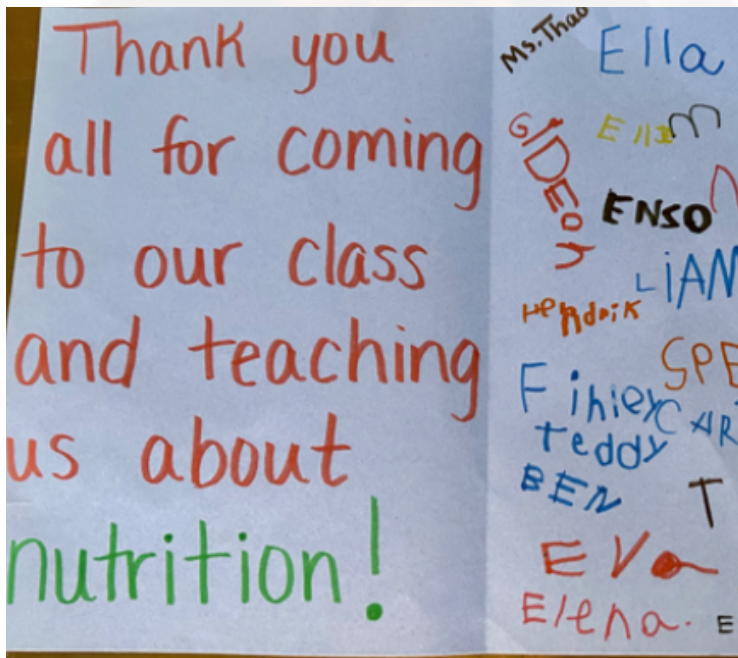 Thank you
all for coming
to our class
and teaching
us about
nutrition!
Ms. Thao
Ella
GIDEON
ENSO
LiAM
Hendrik
Finley
Teddy
BEN
EVa
Elena.